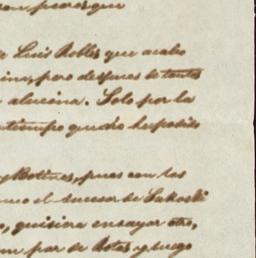 porque
Luis Robles que acabo
pero despues de tantos
alucina. Solo por la
tiempo que no he podido
y Botines, pues con las
el sucesor de Sakoski
quisiera ensayar otro,
un par de Botas y luego